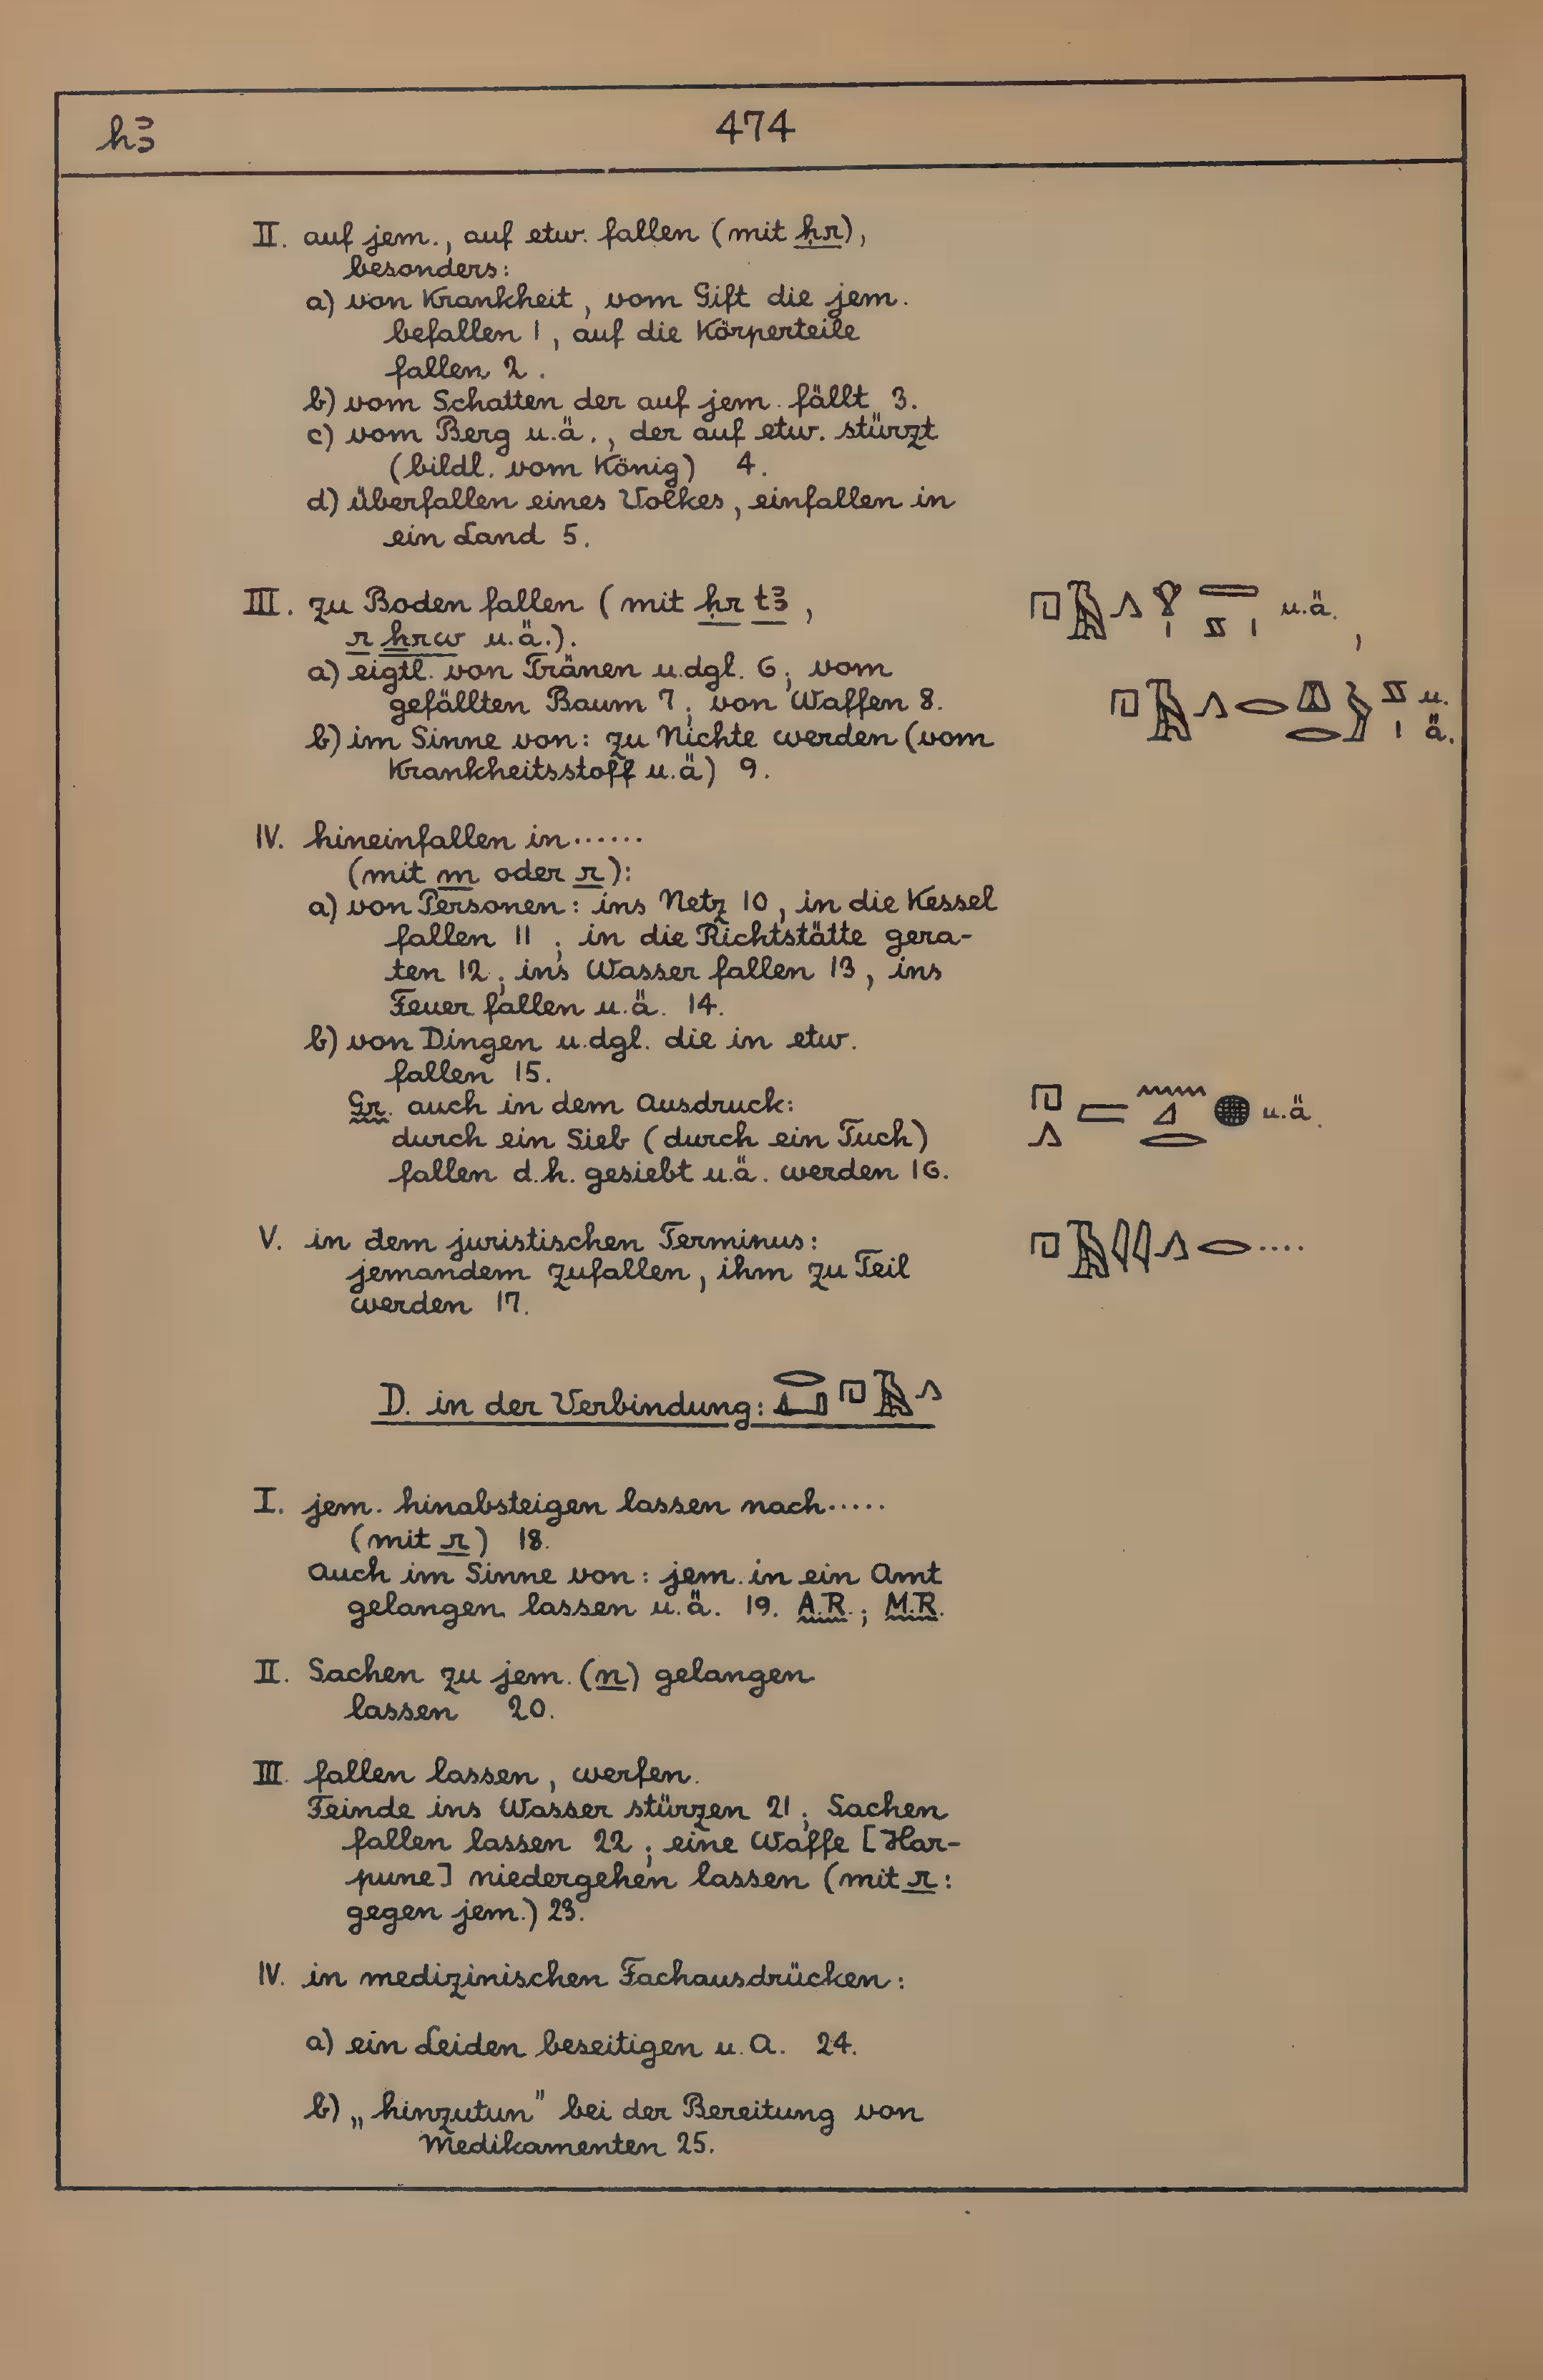 hꜣ
474
II. auf jem., auf etw. fallen (mit ḥr),
besonders:
a) von Krankheit, vom Gift die jem.
befallen 1, auf die Körperteile
fallen 2.
b) vom Schatten der auf jem. fällt 3.
c) vom Berg u.ä., der auf etw. stürzt
(bildl. vom König) 4.
d) überfallen eines Volkes, einfallen in
ein Land 5.
III. zu Boden fallen (mit ḥr tꜣ, u.ä.,
r ẖrw u.ä.).
a) eigtl. von Tränen u.dgl. 6; vom
gefällten Baum 7; von Waffen 8. u.ä.
b) im Sinne von: zu Nichte werden (vom
Krankheitsstoff u.ä) 9.
IV. hineinfallen in ......
(mit m oder r):
a) von Personen: ins Netz 10, in die Kessel
fallen 11; in die Richtstätte gera-
ten 12; ins Wasser fallen 13, ins
Feuer fallen u.ä. 14.
b) von Dingen u.dgl. die in etw.
fallen 15.
Gr. auch in dem Ausdruck: u.ä.
durch ein Sieb (durch ein Tuch)
fallen d.h. gesiebt u.ä. werden 16.
V. in dem juristischen Terminus: ....
jemandem zufallen, ihm zu Teil
werden 17.
D. in der Verbindung:
I. jem. hinabsteigen lassen nach .....
(mit r) 18.
Auch im Sinne von: jem. in ein Amt
gelangen lassen u.ä. 19. A.R.; M.R.
II. Sachen zu jem. (n) gelangen
lassen 20.
III. fallen lassen, werfen.
Feinde ins Wasser stürzen 21; Sachen
fallen lassen 22; eine Waffe [Har-
pune] niedergehen lassen (mit r:
gegen jem.) 23.
IV. in medizinischen Fachausdrücken:
a) ein Leiden beseitigen u.A. 24.
b) „hinzutun" bei der Bereitung von
Medikamenten 25.